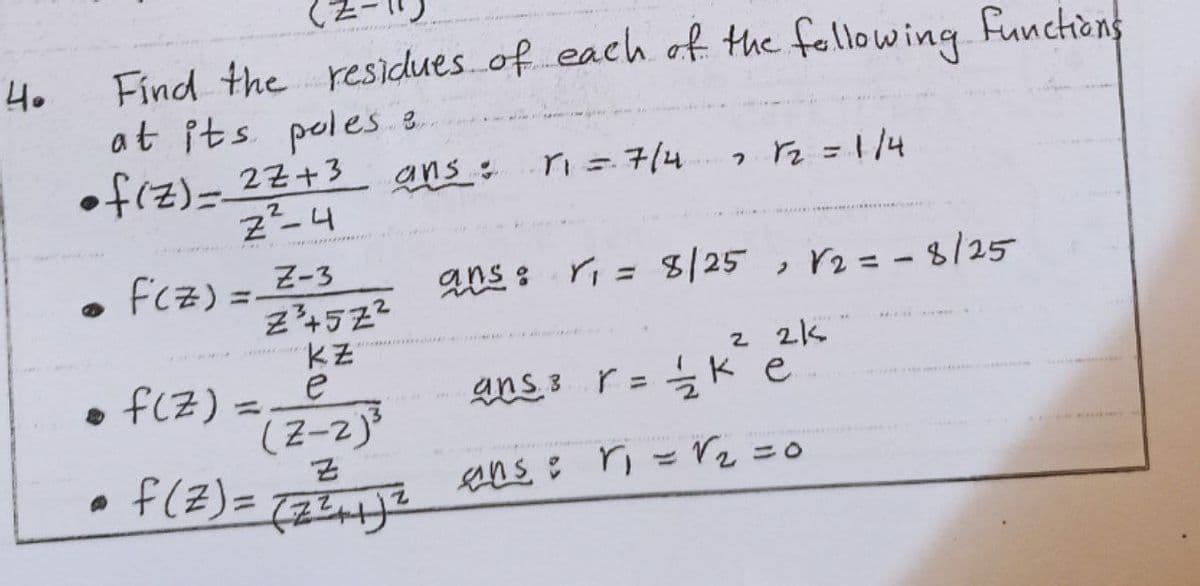 4. Find the residues of each of the following functions
at its poles :
• f(z) = 2z+3 / z²-4 ans : r₁ = 7/4 , r₂ = 1/4
• f(z) = z-3 / z³+5z² ans : r₁ = 8/25 , r₂ = - 8/25
• f(z) = e^kz / (z-2)³ ans : r = ½ k² e^2k
• f(z) = z / (z²+1)² ans : r₁ = r₂ = 0